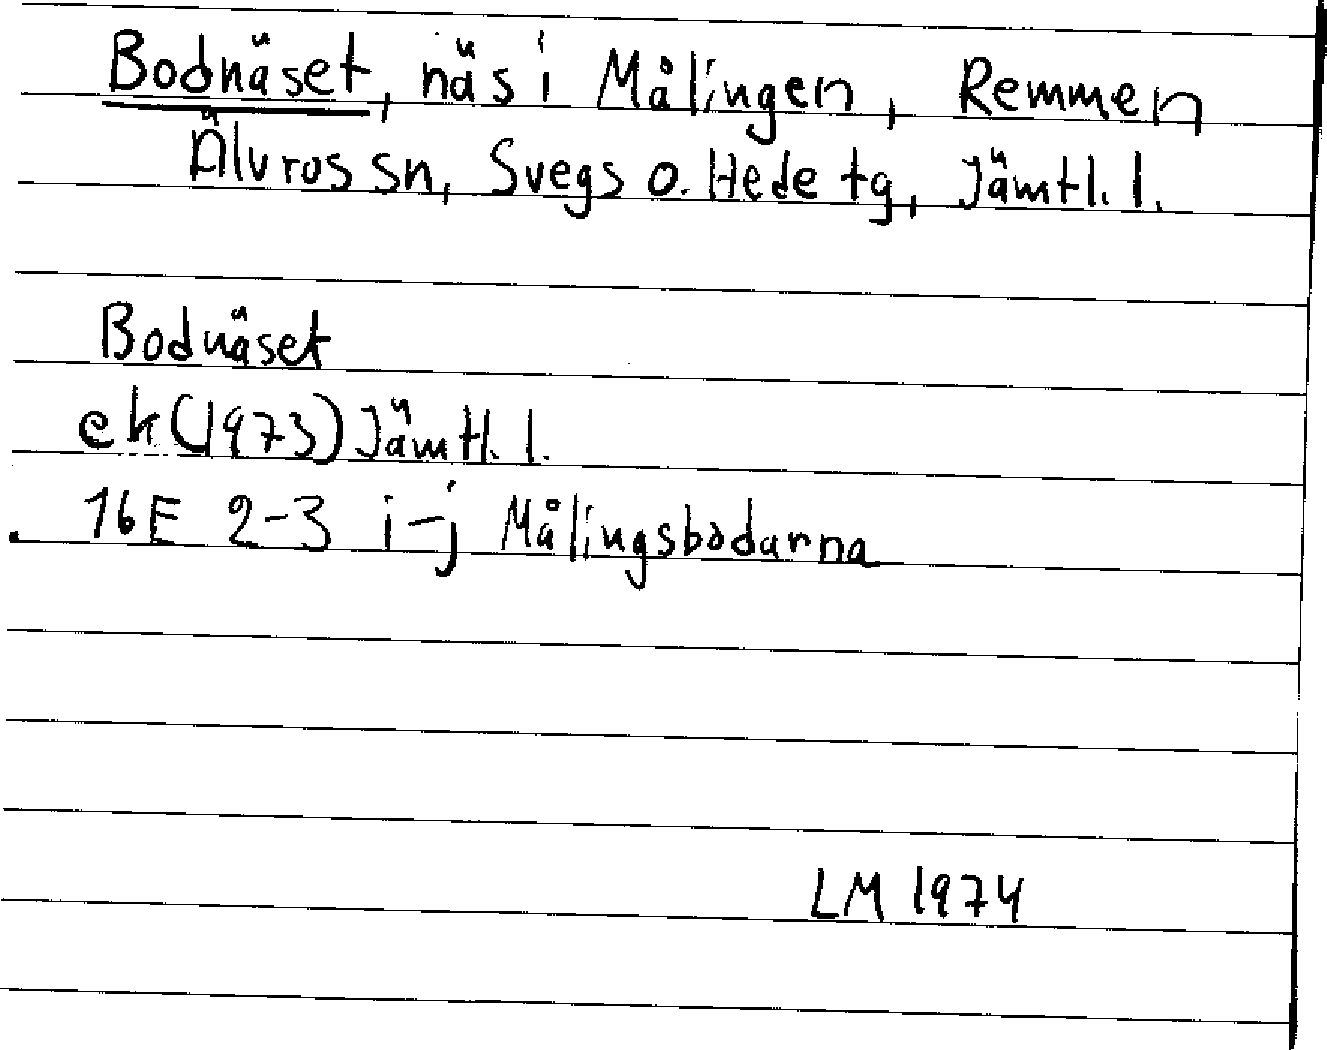 Bodnäset, näs i Målingen, Remmen
Älvros sn, Svegs o. Hede tg, Jämtl. l.
Bodnäset
ek (1973) Jämtl. l.
16E 2-3 i-j Målingsbodarna
LM 1974